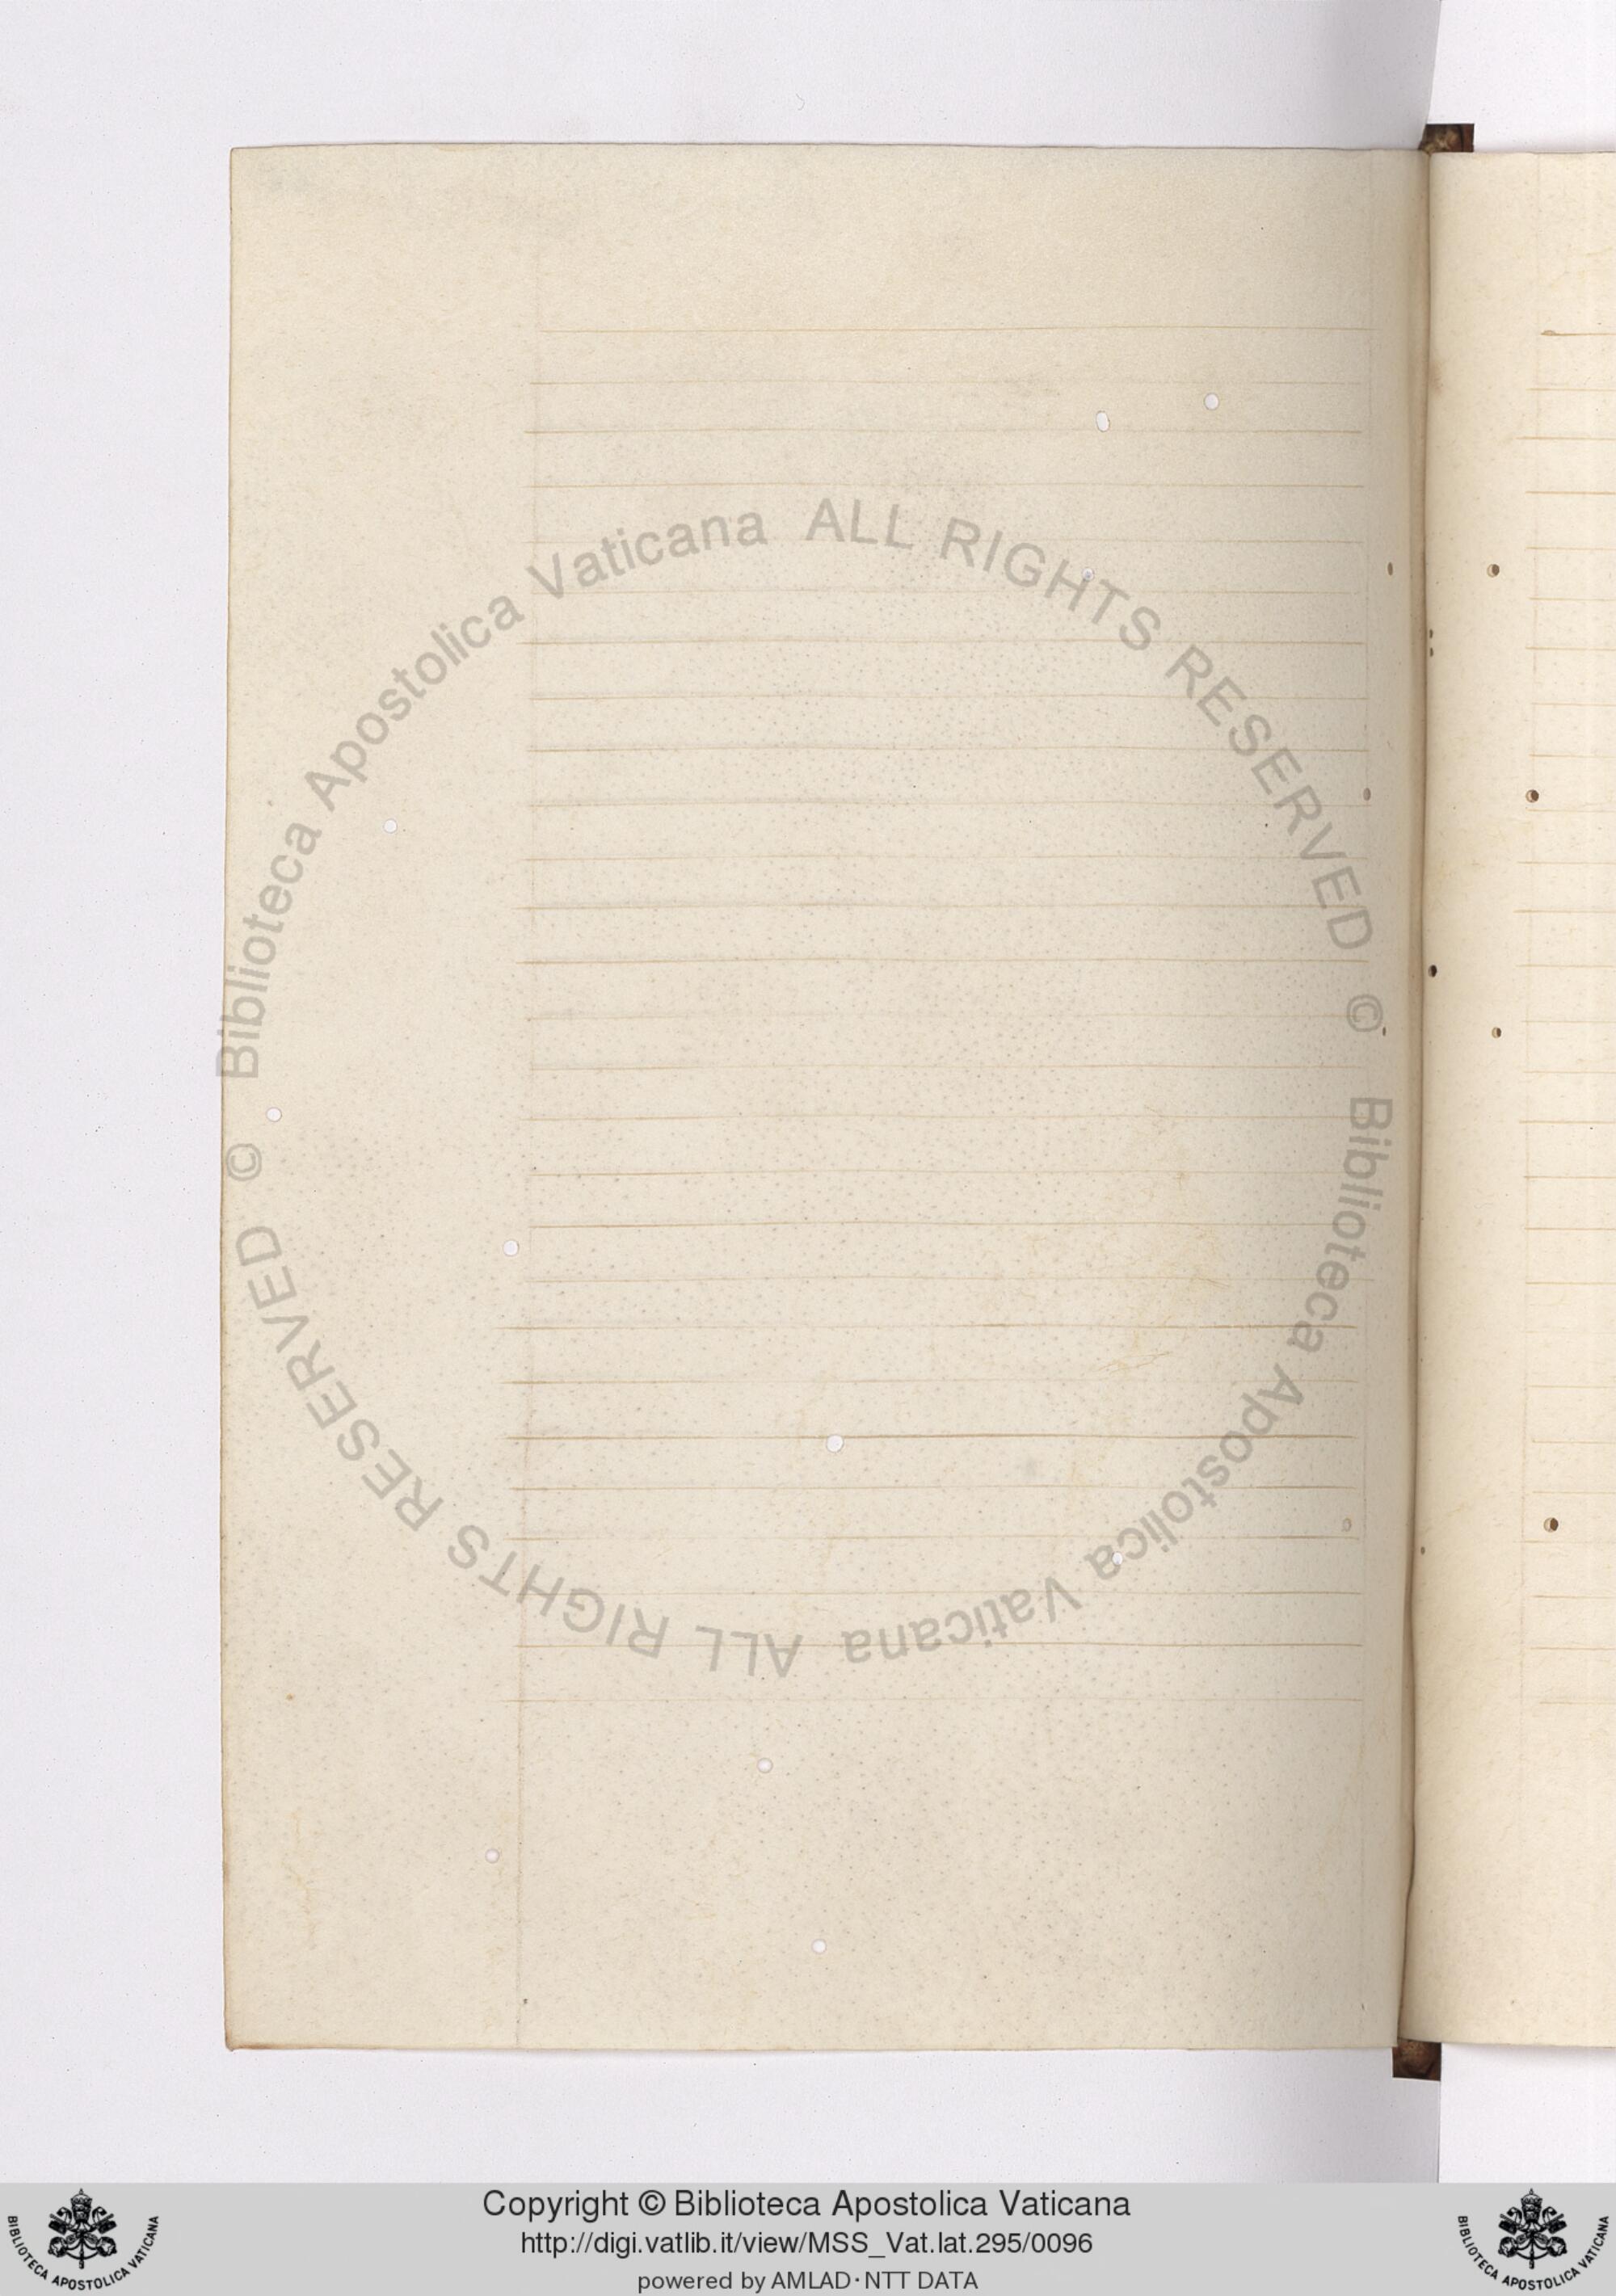 © Biblioteca Apostolica Vaticana ALL RIGHTS RESERVED
© Biblioteca Apostolica Vaticana ALL RIGHTS RESERVED
BIBLIOTECA APOSTOLICA VATICANA
Copyright © Biblioteca Apostolica Vaticana
http://digi.vatlib.it/view/MSS_Vat.lat.295/0096
powered by AMLAD·NTT DATA
BIBLIOTECA APOSTOLICA VATICANA